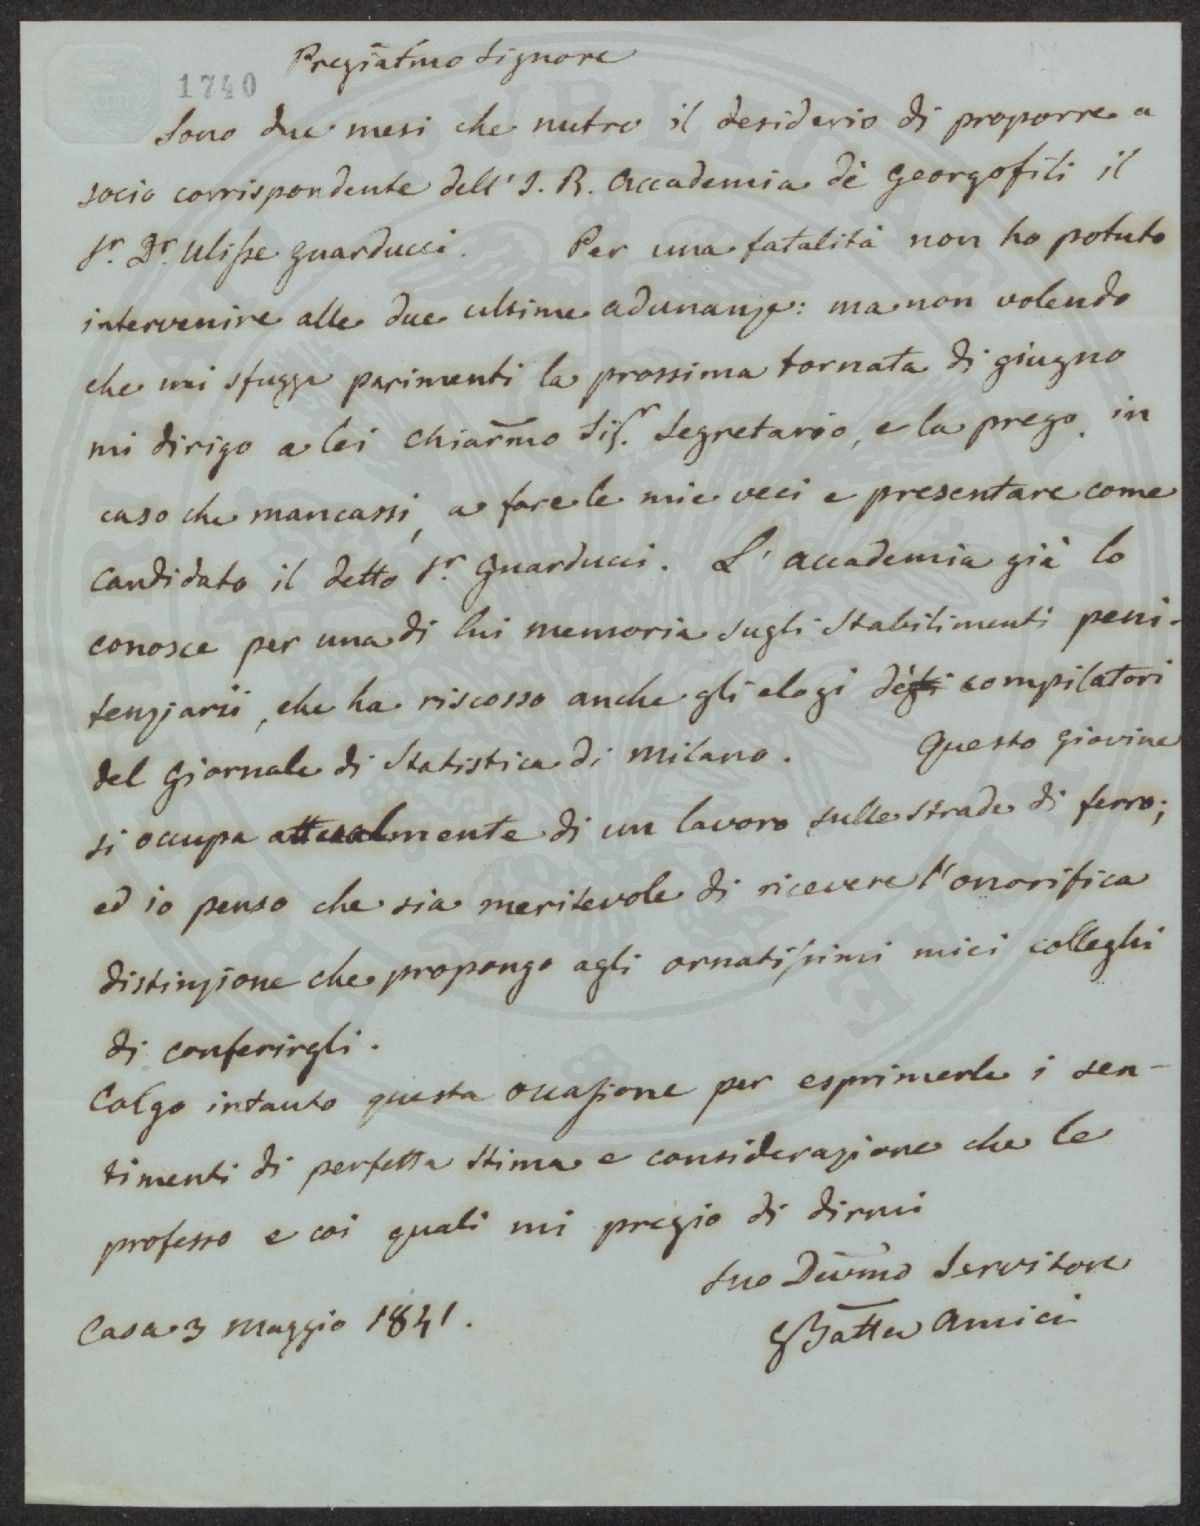 Pregiatmo Signore
1740
Sono due mesi che nutro il desiderio di proporre a
socio corrispondente dell' I. R. Accademia de' Georgofili il
Sr. Dr. Ulisse Guarducci. Per una fatalità non ho potuto
intervenire alle due ultime adunanze: ma non volendo
che mi sfugga parimenti la prossima tornata di giugno
mi dirigo a lei Chiarmo Sigr. Segretario, e la prego, in
caso che mancassi, a fare le mie veci e presentare come
candidato il detto Sr. Guarducci. L' Accademia già lo
conosce per una di lui memoria sugli Stabilimenti peni-
tenziarii, che ha riscosso anche gli elogi de' compilatori
del Giornale di Statistica di Milano. Questo giovine
si occupa attualmente di un lavoro sulle strade di ferro;
ed io penso che sia meritevole di ricevere l'onorifica
distinzione che propongo agli ornatissimi miei colleghi
di conferirgli.
Colgo intanto questa occasione per esprimerle i sen-
timenti di perfetta stima e considerazione che le
professo e coi quali mi pregio di dirmi
Suo Devmo Servitore
Casa 3 Maggio 1841.
GBatta Amici